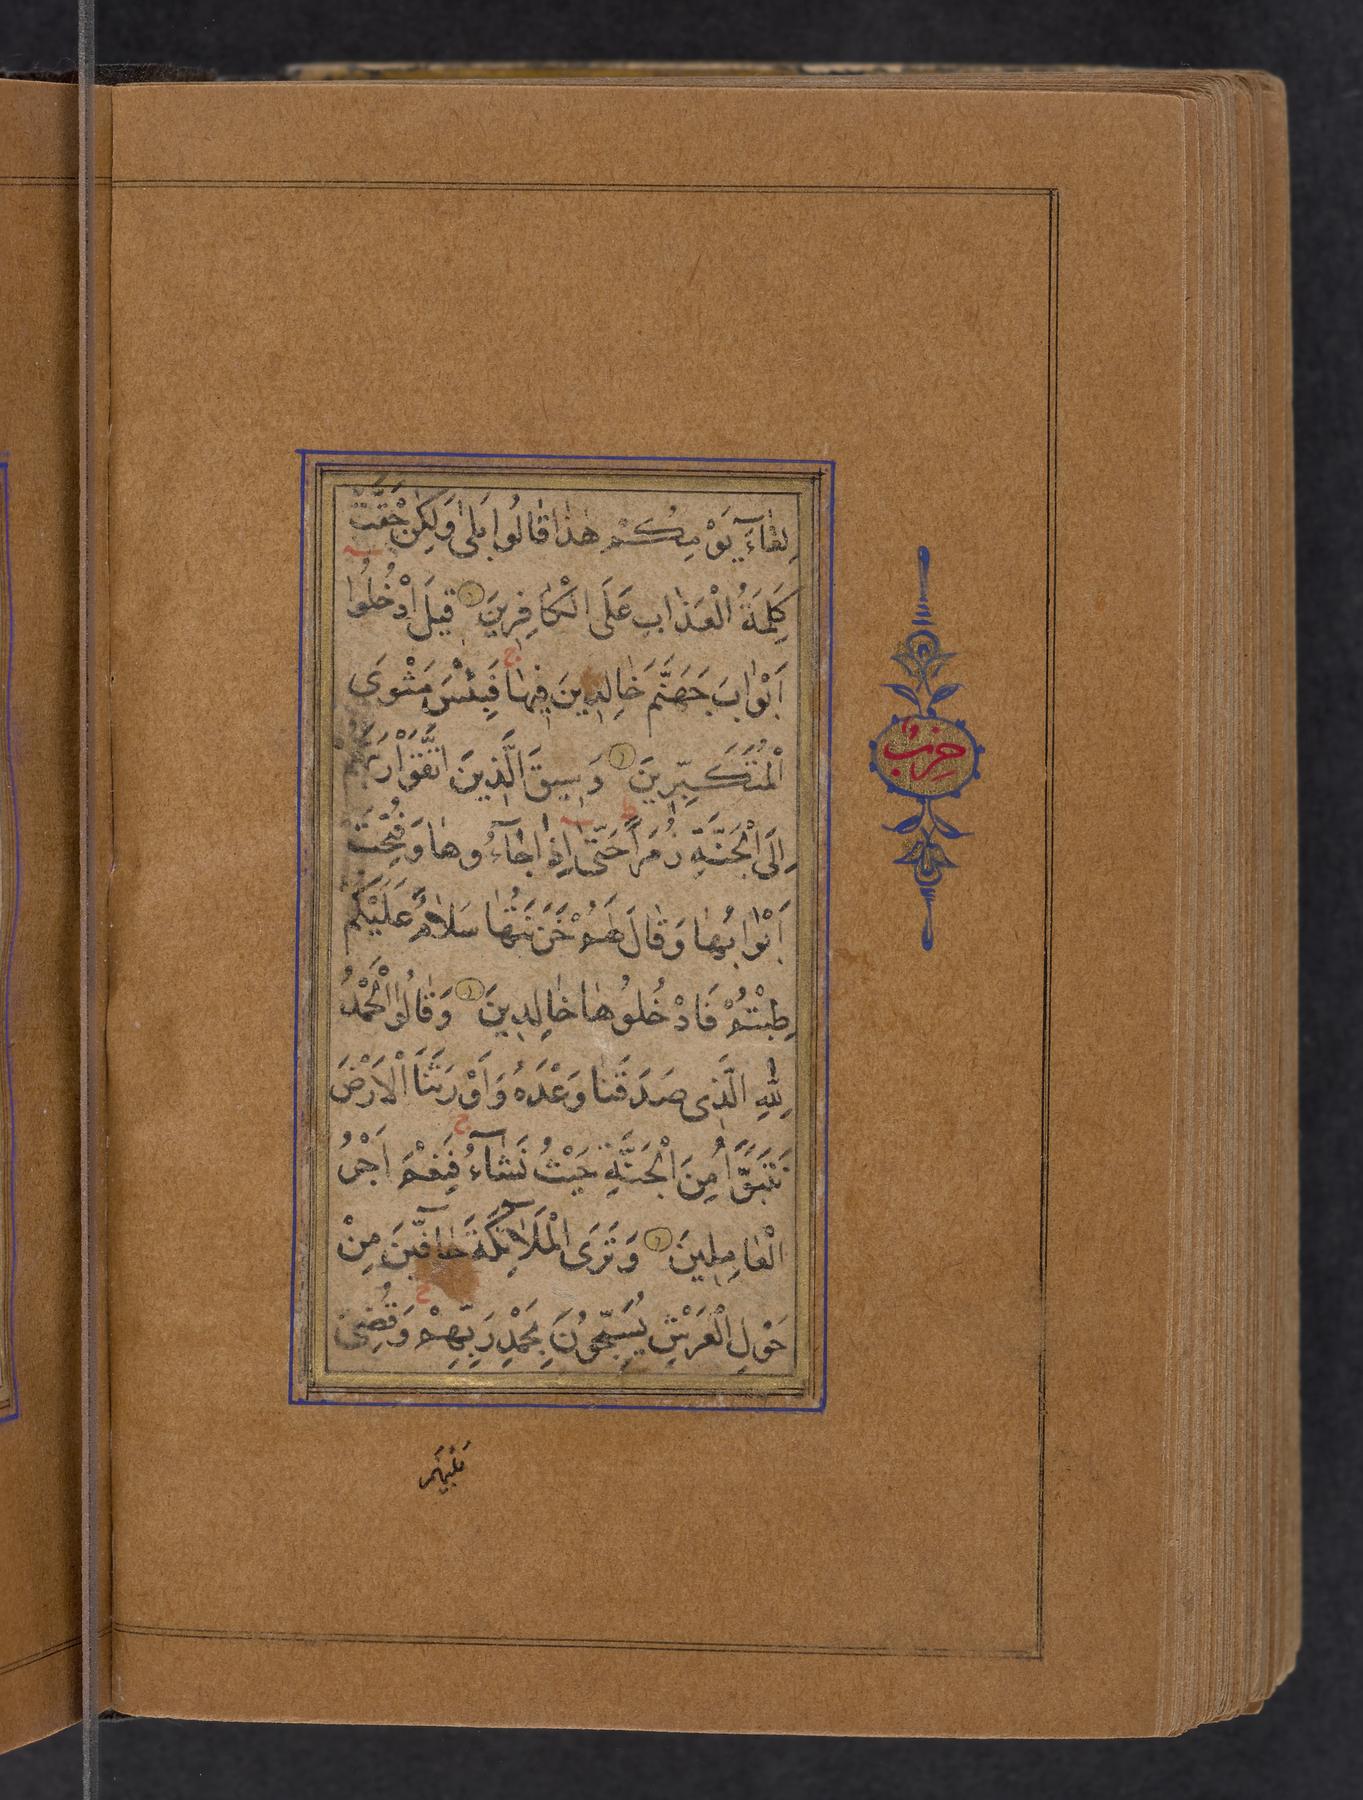 لِقَاءَ يَوْمِكُمْ هٰذَا قَالُوا بَلىٰ وَلٰكِنْ حَقَّتْ
كَلِمَةُ الْعَذَابِ عَلَى الْكَافِرِينَ قِيلَ ادْخُلُوا
اَبْوٰابَ جَهَنَّمَ خٰالِدِينَ فِيهٰا فَبِئْسَ مَثْوَى
الْمُتَكَبِّرِينَ وَسِيقَ الَّذِينَ اتَّقَوْا رَبَّهُمْ
اِلَى الْجَنَّةِ زُمَرًا حَتّٰى اِذٰا جٰآءُوهٰا وَفُتِحَتْ
اَبْوٰابُهٰا وَقٰالَ لَهُمْ خَزَنَتُهٰا سَلاٰمٌ عَلَيْكُمْ
طِبْتُمْ فَادْخُلُوهٰا خٰالِدِينَ وَقٰالُوا الْحَمْدُ
لِلّٰهِ الَّذِى صَدَقَنٰا وَعْدَهُ وَاَوْرَثَنَا الْاَرْضَ
نَتَبَوَّأُ مِنَ الْجَنَّةِ حَيْثُ نَشٰآءُ فَنِعْمَ اَجْرُ
الْعٰامِلِينَ وَتَرَى الْمَلاٰئِكَةَ حٰآفِّينَ مِنْ
حَوْلِ الْعَرْشِ يُسَبِّحُونَ بِحَمْدِ رَبِّهِمْ وَقُضِىَ
حزب
بَيْنَهُمْ